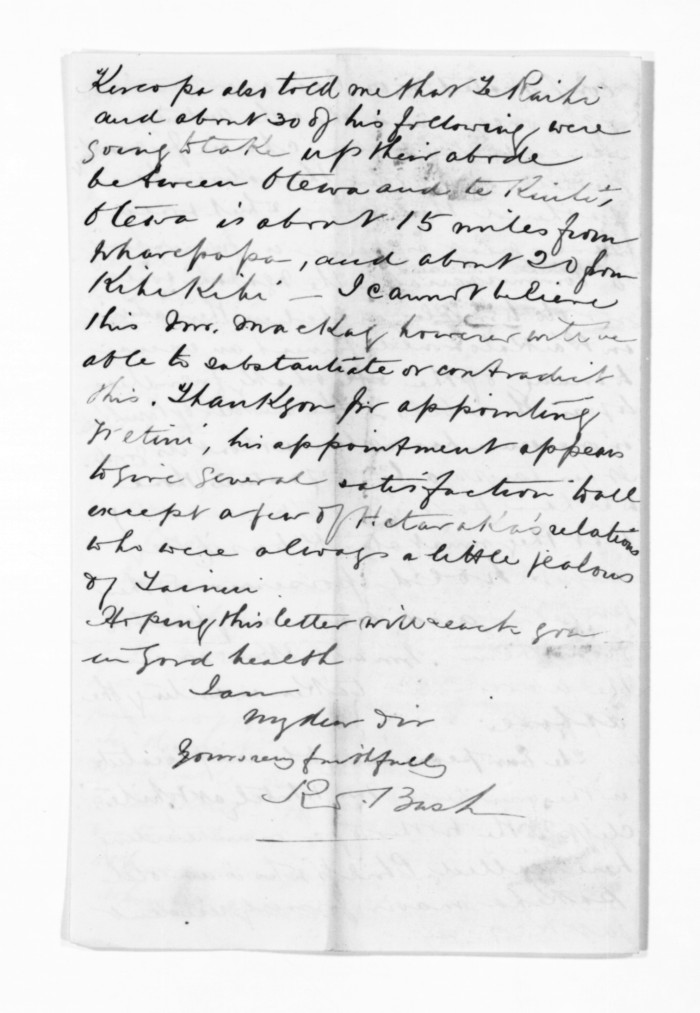 Kereopa also told me that Te Raihi
and about 30 of his following were
going to take up their abode
between Otewa and te Kuiti,
Otewa is about 15 miles from
Wharepapa, and about 20 from
Kihikihi — I cannot believe
this Mr. Mackay however will be
able to substantiate or contradict
this. Thank you for appointing
Wetini, his appointment appears
to give general satisfaction to all
except a few of Hetaraka's relations
who were always a little jealous
of Tainui
Hoping this letter will reach you
in Good health
I am
My dear Sir
Yours very faithfully
R S. Bush